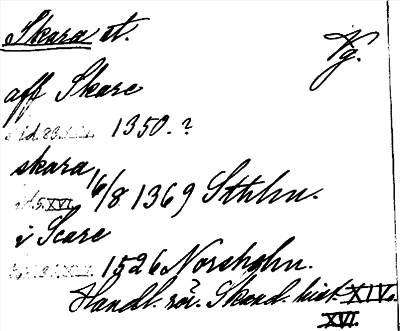 Skara st.
Vg.
aff Skare
1350.?
skara
XVI 16/8 1369 Sthlm.
i Scare
1526 Norsholm.
Handl. rör. Skand. hist. XIV.
XVI.